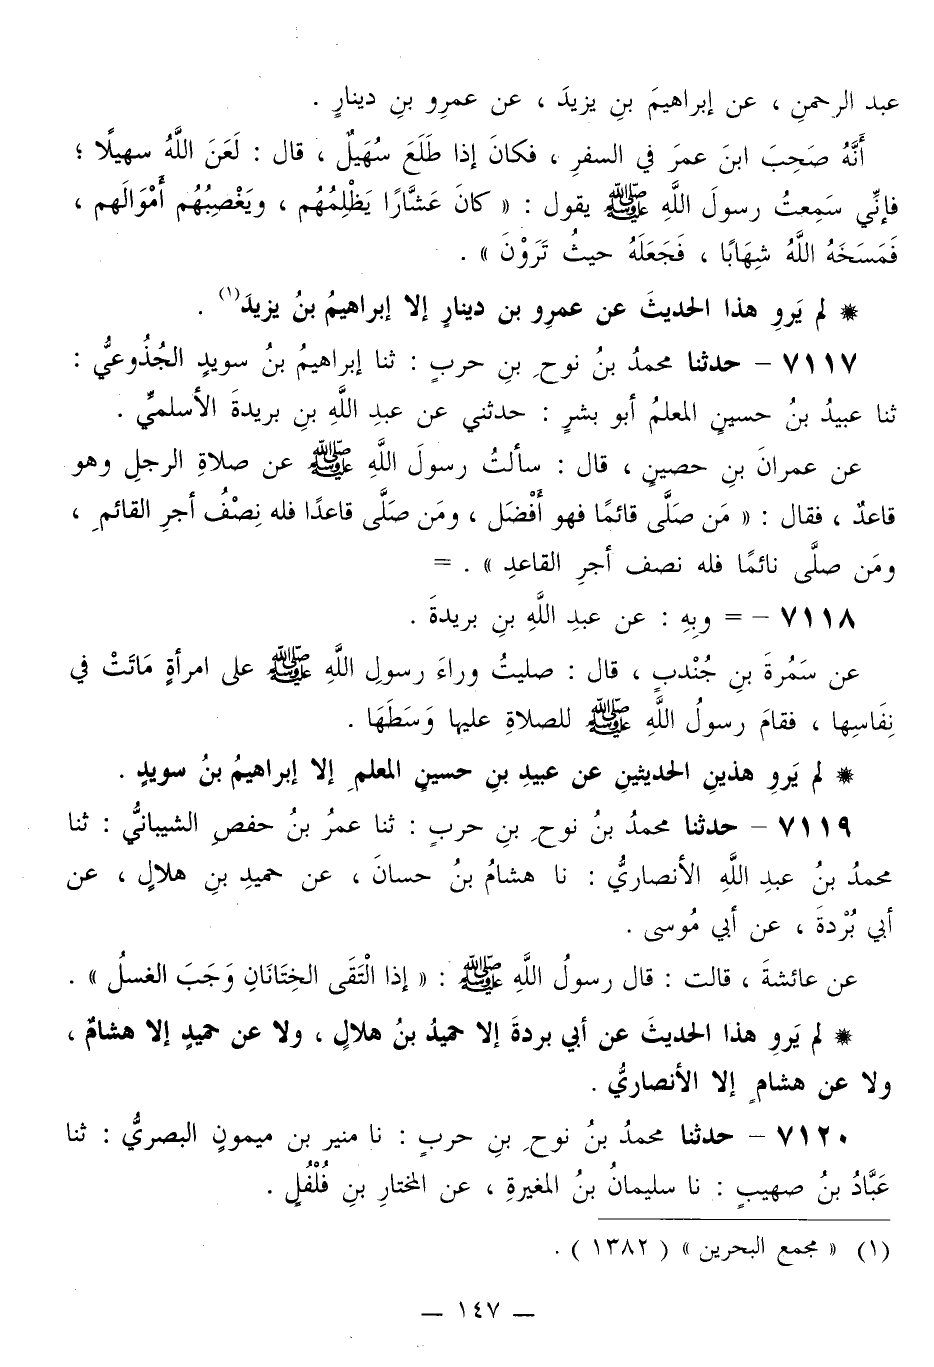 عبد الرحمنِ ، عن إبراهيمَ بنِ يزيدَ ، عن عمرِو بنِ دينارٍ .
أَنَّهُ صَحِبَ ابنَ عمرَ في السفرِ ، فكانَ إذا طَلَعَ سُهَيلٌ ، قال : لَعَنَ اللَّهُ سهيلًا ؛
فإنِّي سَمِعتُ رسولَ اللَّهِ ﷺ يقول : « كانَ عَشَّارًا يَظْلِمُهُم ، ويَغْصِبُهُم أَمْوَالَهم ،
فَمَسَخَهُ اللَّهُ شِهَابًا ، فَجَعَلَهُ حيثُ تَرَوْنَ » .
* لم يَروِ هذا الحديثَ عن عمرِو بن دينارٍ إلا إبراهيمُ بنُ يزيدَ(١) .
٧١١٧ – حدثنا محمدُ بنُ نوحِ بنِ حربٍ : ثنا إبراهيمُ بنُ سويدٍ الجُذُوعيُّ :
ثنا عبيدُ بنُ حسينٍ المعلمُ أبو بشرٍ : حدثني عن عبدِ اللَّهِ بنِ بريدةَ الأسلميِّ .
عن عمرانَ بنِ حصينٍ ، قال : سألتُ رسولَ اللَّهِ ﷺ عن صلاةِ الرجلِ وهو
قاعدٌ ، فقال : « مَن صلَّى قائمًا فهو أَفْضَل ، ومَن صَلَّى قاعدًا فله نِصْفُ أجرِ القائمِ ،
ومَن صلَّى نائمًا فله نصف أجرِ القاعدِ » . =
٧١١٨ – = وبِهِ : عن عبدِ اللَّهِ بنِ بريدةَ .
عن سَمُرةَ بنِ جُنْدبٍ ، قال : صليتُ وراءَ رسولِ اللَّهِ ﷺ على امرأةٍ مَاتَتْ في
نِفَاسِها ، فقامَ رسولُ اللَّهِ ﷺ للصلاةِ عليها وَسَطَهَا .
* لم يَروِ هذينِ الحديثينِ عن عبيدِ بنِ حسينٍ المعلمِ إلا إبراهيمُ بنُ سويدٍ .
٧١١٩ – حدثنا محمدُ بنُ نوحِ بنِ حربٍ : ثنا عمرُ بنُ حفصٍ الشيبانيُّ : ثنا
محمدُ بنُ عبدِ اللَّهِ الأنصاريُّ : نا هشامُ بنُ حسانَ ، عن حميدِ بنِ هلالٍ ، عن
أبي بُرْدةَ ، عن أبي مُوسى .
عن عائشةَ ، قالت : قال رسولُ اللَّهِ ﷺ : « إذا الْتَقَى الخِتَانَانِ وَجَبَ الغسلُ » .
* لم يَروِ هذا الحديثَ عن أبي بردةَ إلا حميدُ بنُ هلالٍ ، ولا عن حميدٍ إلا هشامٌ ،
ولا عن هشامٍ إلا الأنصاريُّ .
٧١٢٠ – حدثنا محمدُ بنُ نوحِ بنِ حربٍ : نا منير بن ميمونٍ البصريُّ : ثنا
عَبَّادُ بنُ صهيبٍ : نا سليمانُ بنُ المغيرةِ ، عن المختارِ بنِ فُلْفُلٍ .
(١) « مجمع البحرين » ( ١٣٨٢ ) .
— ١٤٧ —